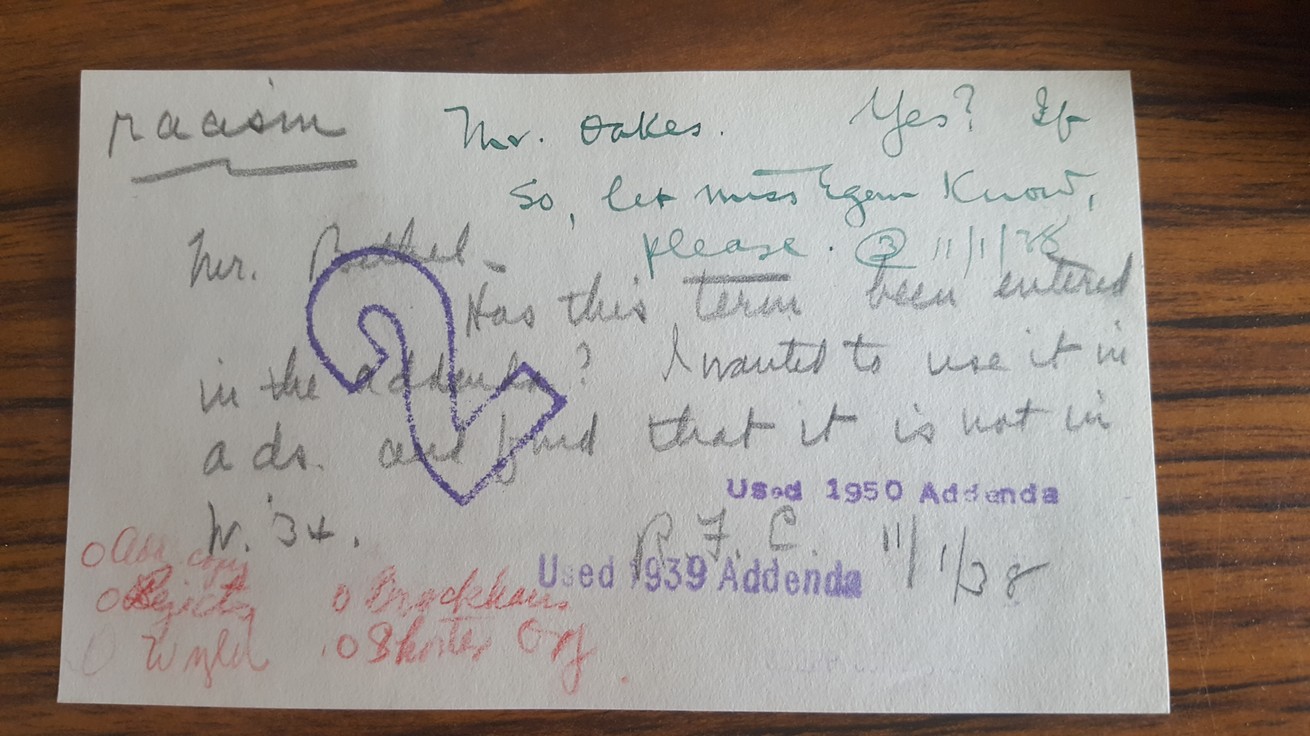 racism
Mr. Oakes. Yes? If
so, let Miss Egan know,
please. B 11/1/38
Mr. Bethel –
Has this term been entered
in the addenda? I wanted to use it in
ads. and find that it is not in
W. '34.
R. F. C. 11/1/38
Used 1950 Addenda
Used 1939 Addenda
O Add. copy
O Rejects
O Brockhaus
O Wyld
O Shorter Oxf.